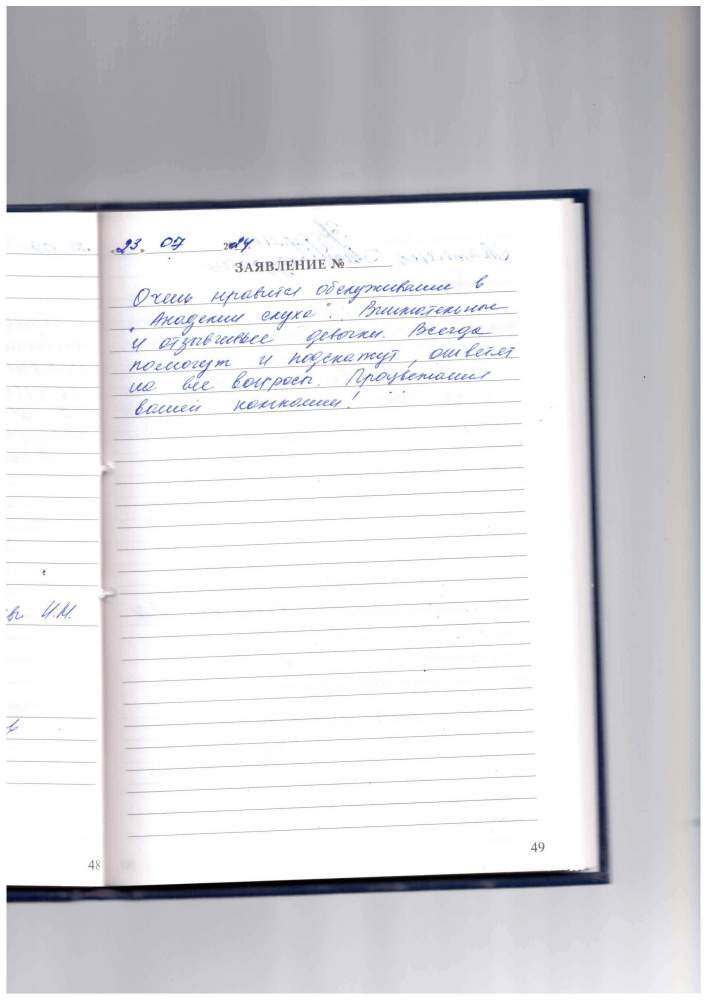 „23„ 07 2024
ЗАЯВЛЕНИЕ №
Очень нравится обслуживание в
„Академии слуха". Внимательные
и отзывчивые девочки. Всегда
помогут и подскажут, ответят
на все вопросы. Процветания
вашей компании!
И.М.
48
49